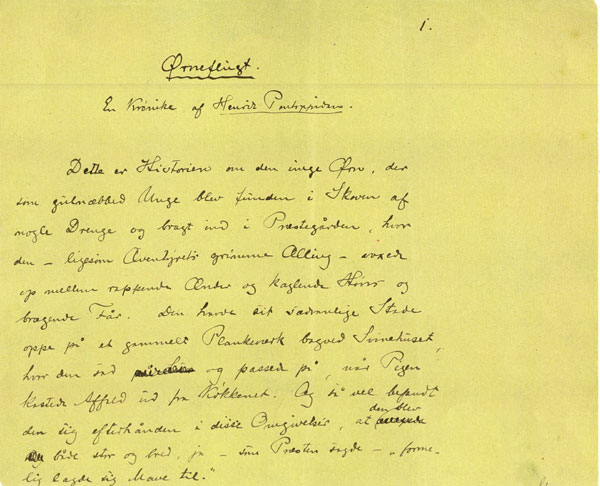 1.
Ørneflugt.
En Krønike af Henrik Pontoppidan.
Dette er Historien om den unge Ørn, der
som gulnæbbed Unge blev funden i Skoven af
nogle Drenge og bragt ind i Præstegården, hvor
den – ligesom Æventyrets grimme Ælling – voxede
op mellem rappende Ænder og kaglende Høns og
brægende Får. Den havde sit sædvanlige Stade
oppe på et gammelt Plankeværk bagved Svinehuset,
hvor den sad og passed på, når Pigen
kastede Affald ud fra Køkkenet. Og så vel befandt
den sig efterhånden i disse Omgivelser, at den blev
både stor og bred, ja – som Præsten sagde – "forme-
lig lagde sig Mave til."